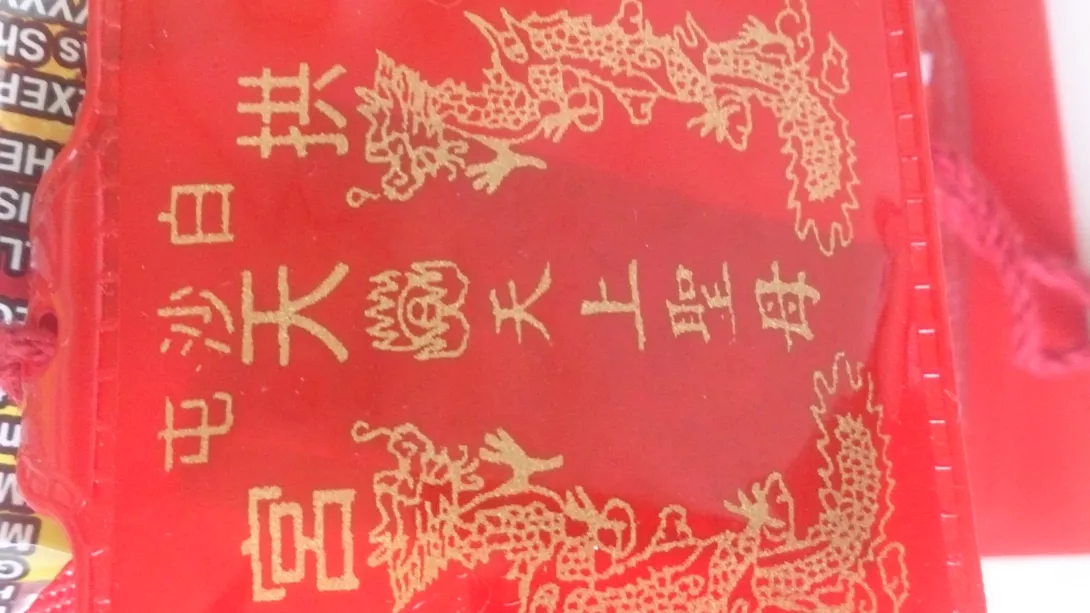 白沙屯
拱天宮
天上聖母